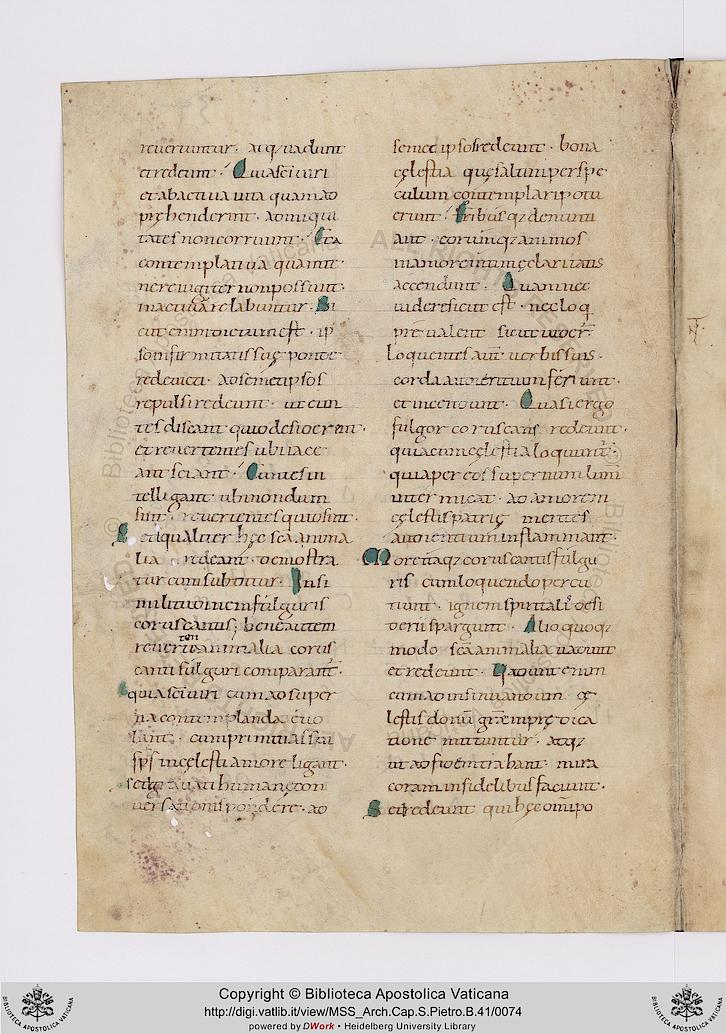 reuertuntur · atq; uadunt
et redeunt · Quia sci uiri
et ab actiua uita quam ad
pręhenderint · ad iniqui
tates non corruunt · Et a
contemplatiua quam te
nere iugiter non possunt ·
in actiuā relabuntur · Si
cut enim dictum est · ip
son firmitatis suę ponde
re deuicti · ad semetipsos
repulsi redeunt · ut eun
tes discant quo desiderent ·
et reuertentes ubi iace
ant sciant · Euntes in
tellegant ubi nondum
sint · reuertentes quid sint ·
Sed qualiter hęc sca anima
lia redeant · demonstra
tur cum subditur · In si
militudinem fulguris
coruscantis; bene autem
reuertentia animalia corus
canti fulguri comparant ·
quia sci uiri cum ad super
na contemplanda euo
lant · cum primitias sui
sps in cęlesti amore ligant ·
sed grauati humanę con
uersationis pondere · ad
semet ipsos redeunt · bona
cęlestia quę saltim per spe
culum contemplari potu
erunt · Fribus q; denunti
ant · eorumq; animos
in amore intimę claritatis
accendunt · Quam nec
uidere sicut est · nec loq
preualent sicut uider̄ ·
Loquentes aut uerbis suis ·
corda audientium feriunt ·
et incendunt · Quasi ergo
fulgor coruscans redeunt ·
quia cum cęlestia loquunt̄ ·
quia per eos supernum lum
inter micat · ad amorem
cęlestis patrię mentes
audientium inflammant ·
More itaq; coruscantis fulgu
ris cum loquendo percu
tiunt · ignem spiritalis desi
derii spargunt · Alio quoq;
modo sca animalia uadunt
et redeunt · Vadunt enim
cum ad insinuandum cę
lestis donū grę in prędica
tione mittuntur · atq;
ut ad fidē trahant · mira
coram infidelibus faciunt ·
Sed redeunt qui hęc om̄ipo
Copyright © Biblioteca Apostolica Vaticana
http://digi.vatlib.it/view/MSS_Arch.Cap.S.Pietro.B.41/0074
powered by DWork • Heidelberg University Library